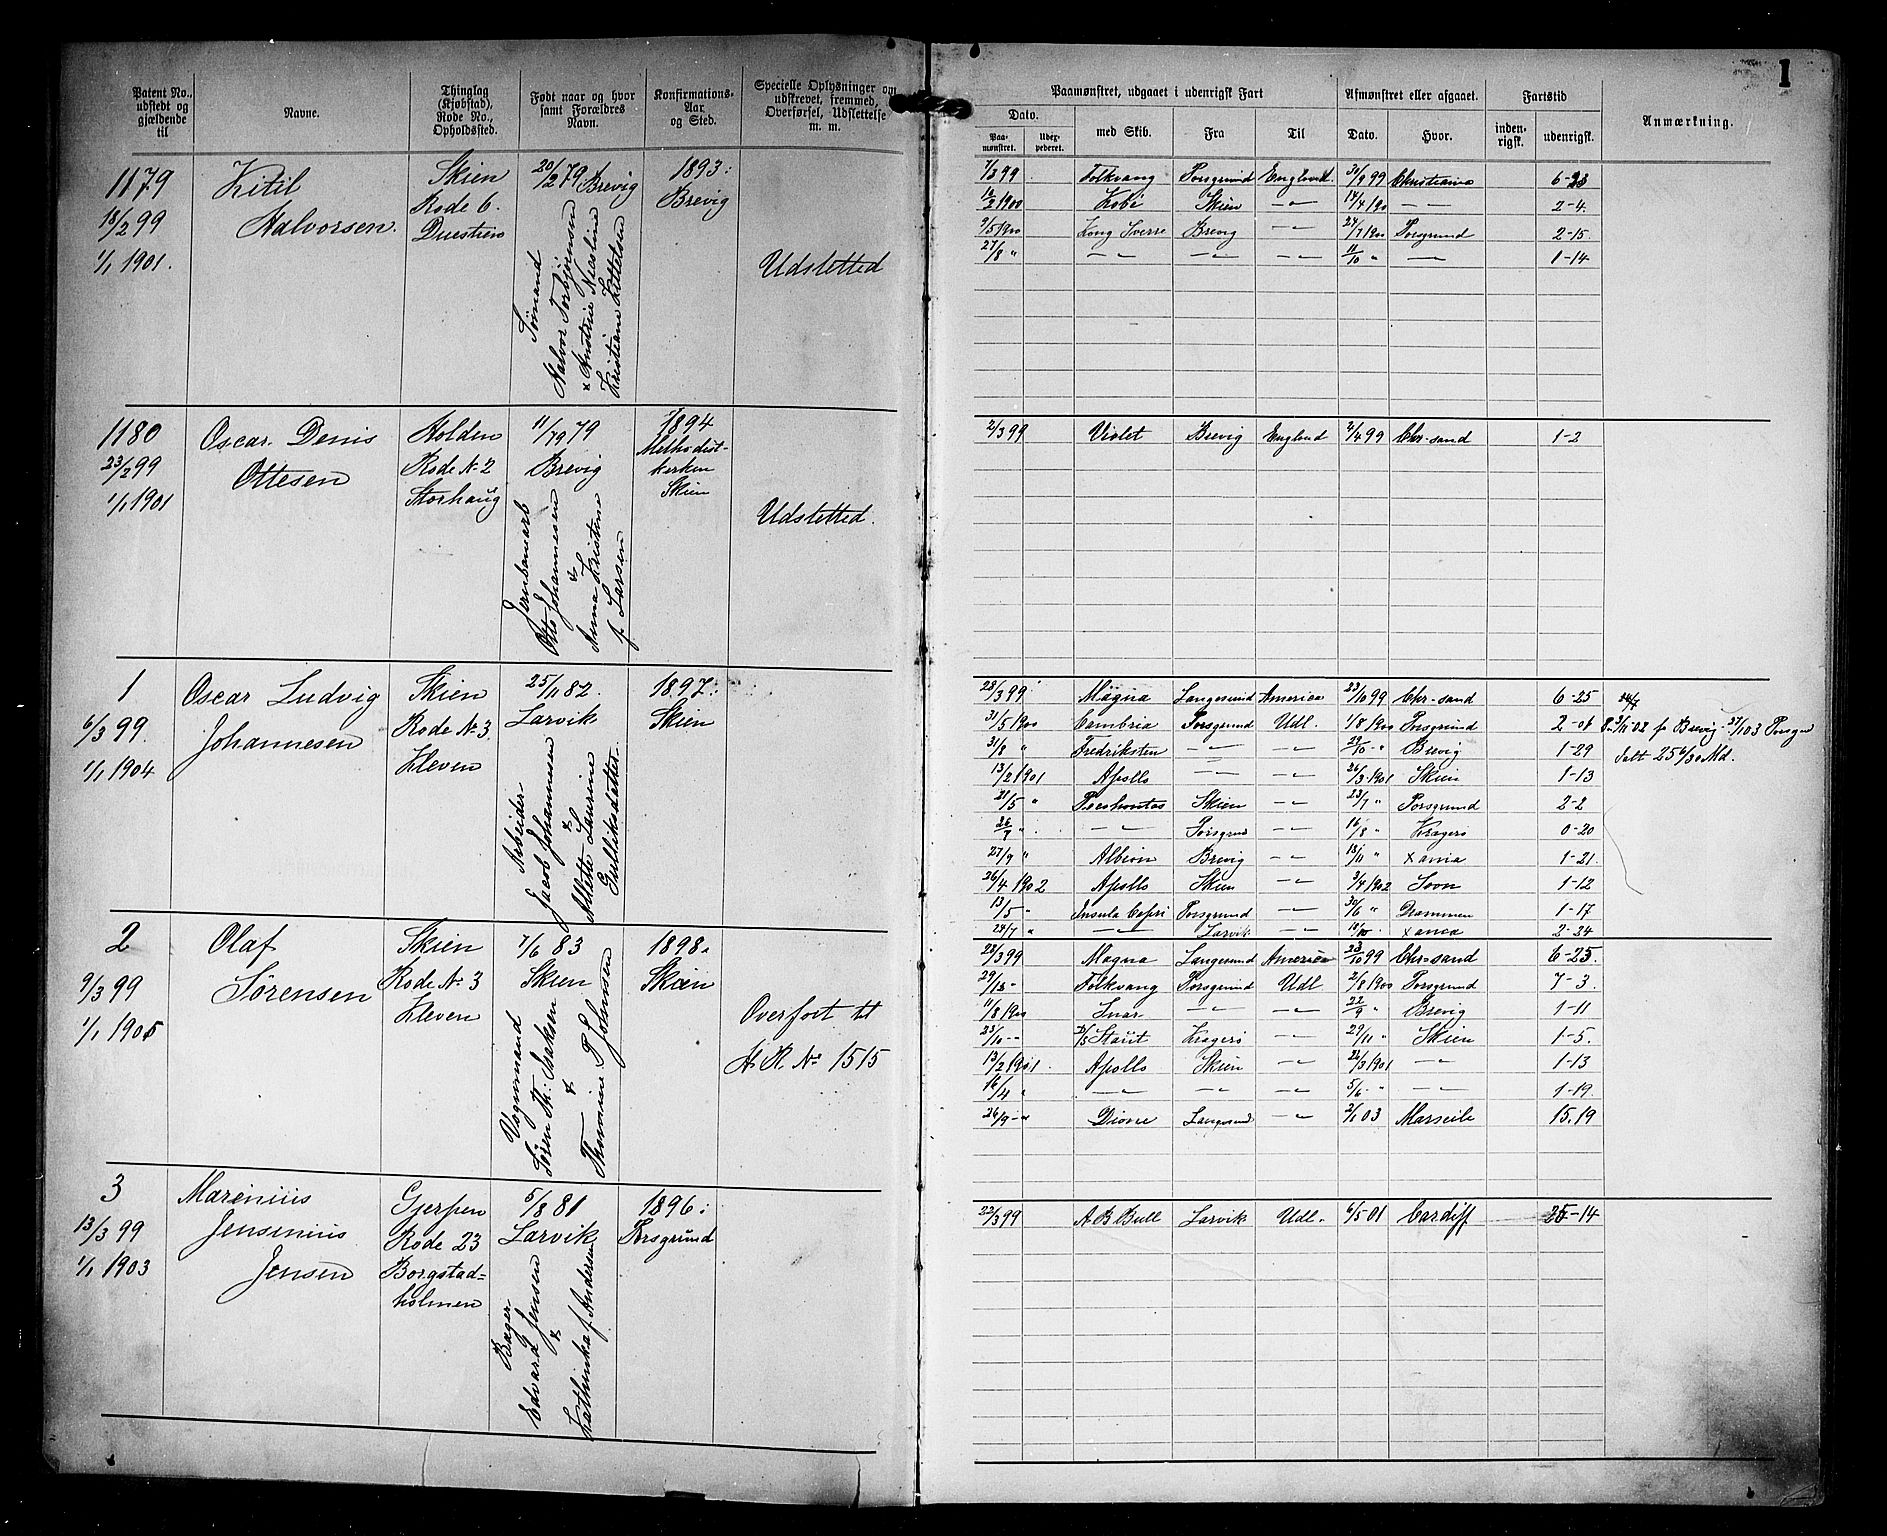 1
Patent No., udstedt og gjældende til
Navne.
Thinglag (Kjøbstad), Rode No., Opholdssted.
Født naar og hvor samt Forældres Navn.
Konfirmations-Aar og Sted.
Specielle Oplysninger om udskrevet, fremmed, Overførsel, Udslettelse m. m.
Paamønstret, udgaaet i udenrigsk Fart
Afmønstret eller afgaaet.
Fartstid
Anmærkning.
Dato.
Paa-mønstret.
med Skib.
Fra
Til
Dato.
Hvor.
inden-rigsk.
udenrigsk.
1179
18/2 99
1/1 1901.
Kitil
Halvorsen.
Skien
Rode 6.
20/2 79 Brevig
Sømand
Halvor Torbjørnsen
Kristiane Kittelsen
1893.
Brevig
Udsletted
7/3 99 Folkvang Porsgrund England. 31/9 99 Christiania 6-23
12/2 1900 Kobi Skien —„— 14/4 190 —„— 2-4.
9/5 1900 Kong Sverre Brevig —„— 24/7 1900 Porsgrund 2-15.
27/8 „ —„— —„— —„— 11/10 „ —„— 1-14
1180
23/2 99
1/1 1901
Oscar Denis
Ottesen
Holden
Rode No 2
Storhaug
11/79 79
Brevig
Jernbanearb
Otto Johannesen
&
Anna Kristine
f. Larsen
1894
Methodist-
kerken
Skien
Udslettet.
2/3 99 Violet Brevig England 2/4 99 Chr-sand 1-2
1
6/3 99.
1/1 1904
Oscar Ludvig
Johannesen
Skien
Rode No 3.
Kleven
25/11 82.
Larvik
Arbeider
Jacob Johannesen
&
Mette Laurine
Gulliksdatter.
1897.
Skien
28/3 99 Magna Langesund America 23/10 99 Chr-sand 6-25
31/5 1900 Cambria Porsgrund Udl. 1/8 1900 Porsgrund 2-01
31/8 „ Fredriksten —„— —„— 29/10 „ Brevig 1-29
13/2 1901 Apollo —„— —„— 26/3 1901 Skien 1-13
21/5 „ Pocahontas Skien —„— 23/7 „ Porsgrund 2-2
26/7 „ —„— Porsgrund —„— 16/8 „ Kragerø 0-20
27/9 „ Albion Brevig —„— 18/11 „ Xania 1-21.
26/4 1902 Apollo Skien —„— 3/4 1902 1-12
13/5 „ Insula Capri Porsgrund —„— 30/6 „ Drammen 1-17
24/7 „ —„— Larvik —„— 18/10 Xania 2-24
3/11 02 f Brevig 27/1 03 Porsgr
Ialt 25 6/30 Md.
2
9/3 99
1/1 1905
Olaf
Sørensen
Skien
Rode No 3
Kleven
7/6 83
Skien
Vognmand
Søren Th: Isaksen
&
Thomine P. Johnsen
1898.
Skien
Overført til
H. R. No 1515
28/3 99 Magna Langesund America 23/10 99 Chr-sand 6-25.
29/12 „ Folkvang Porsgrund Udl. 2/8 1900 Porsgrund 7-3.
11/8 1900 Snar —„— —„— 22/9 „ Brevig 1-11
25/10 „ D/S Stauit Kragerø —„— 29/11 „ Skien 1-5.
13/2 1901. Apollo Skien —„— 26/3 1901 —„— 1-13
16/4 „ —„— —„— —„— 5/6 „ —„— 1-19.
26/9 „ Dione Langesund —„— 2/1 03 Marseile 15.19
3
13/3 99
1/1 1903
Marenius
Jensenius
Jensen
Gjerpen
Rode 23
Borgstad=
holmen
5/8 81
Larvik
Bager
Edvard Jensen
&
Kathinka f. Andersen
1896.
Porsgrund
22/3 99 A B Bull Larvik Udl. 6/5 01 Cardiff 25-14